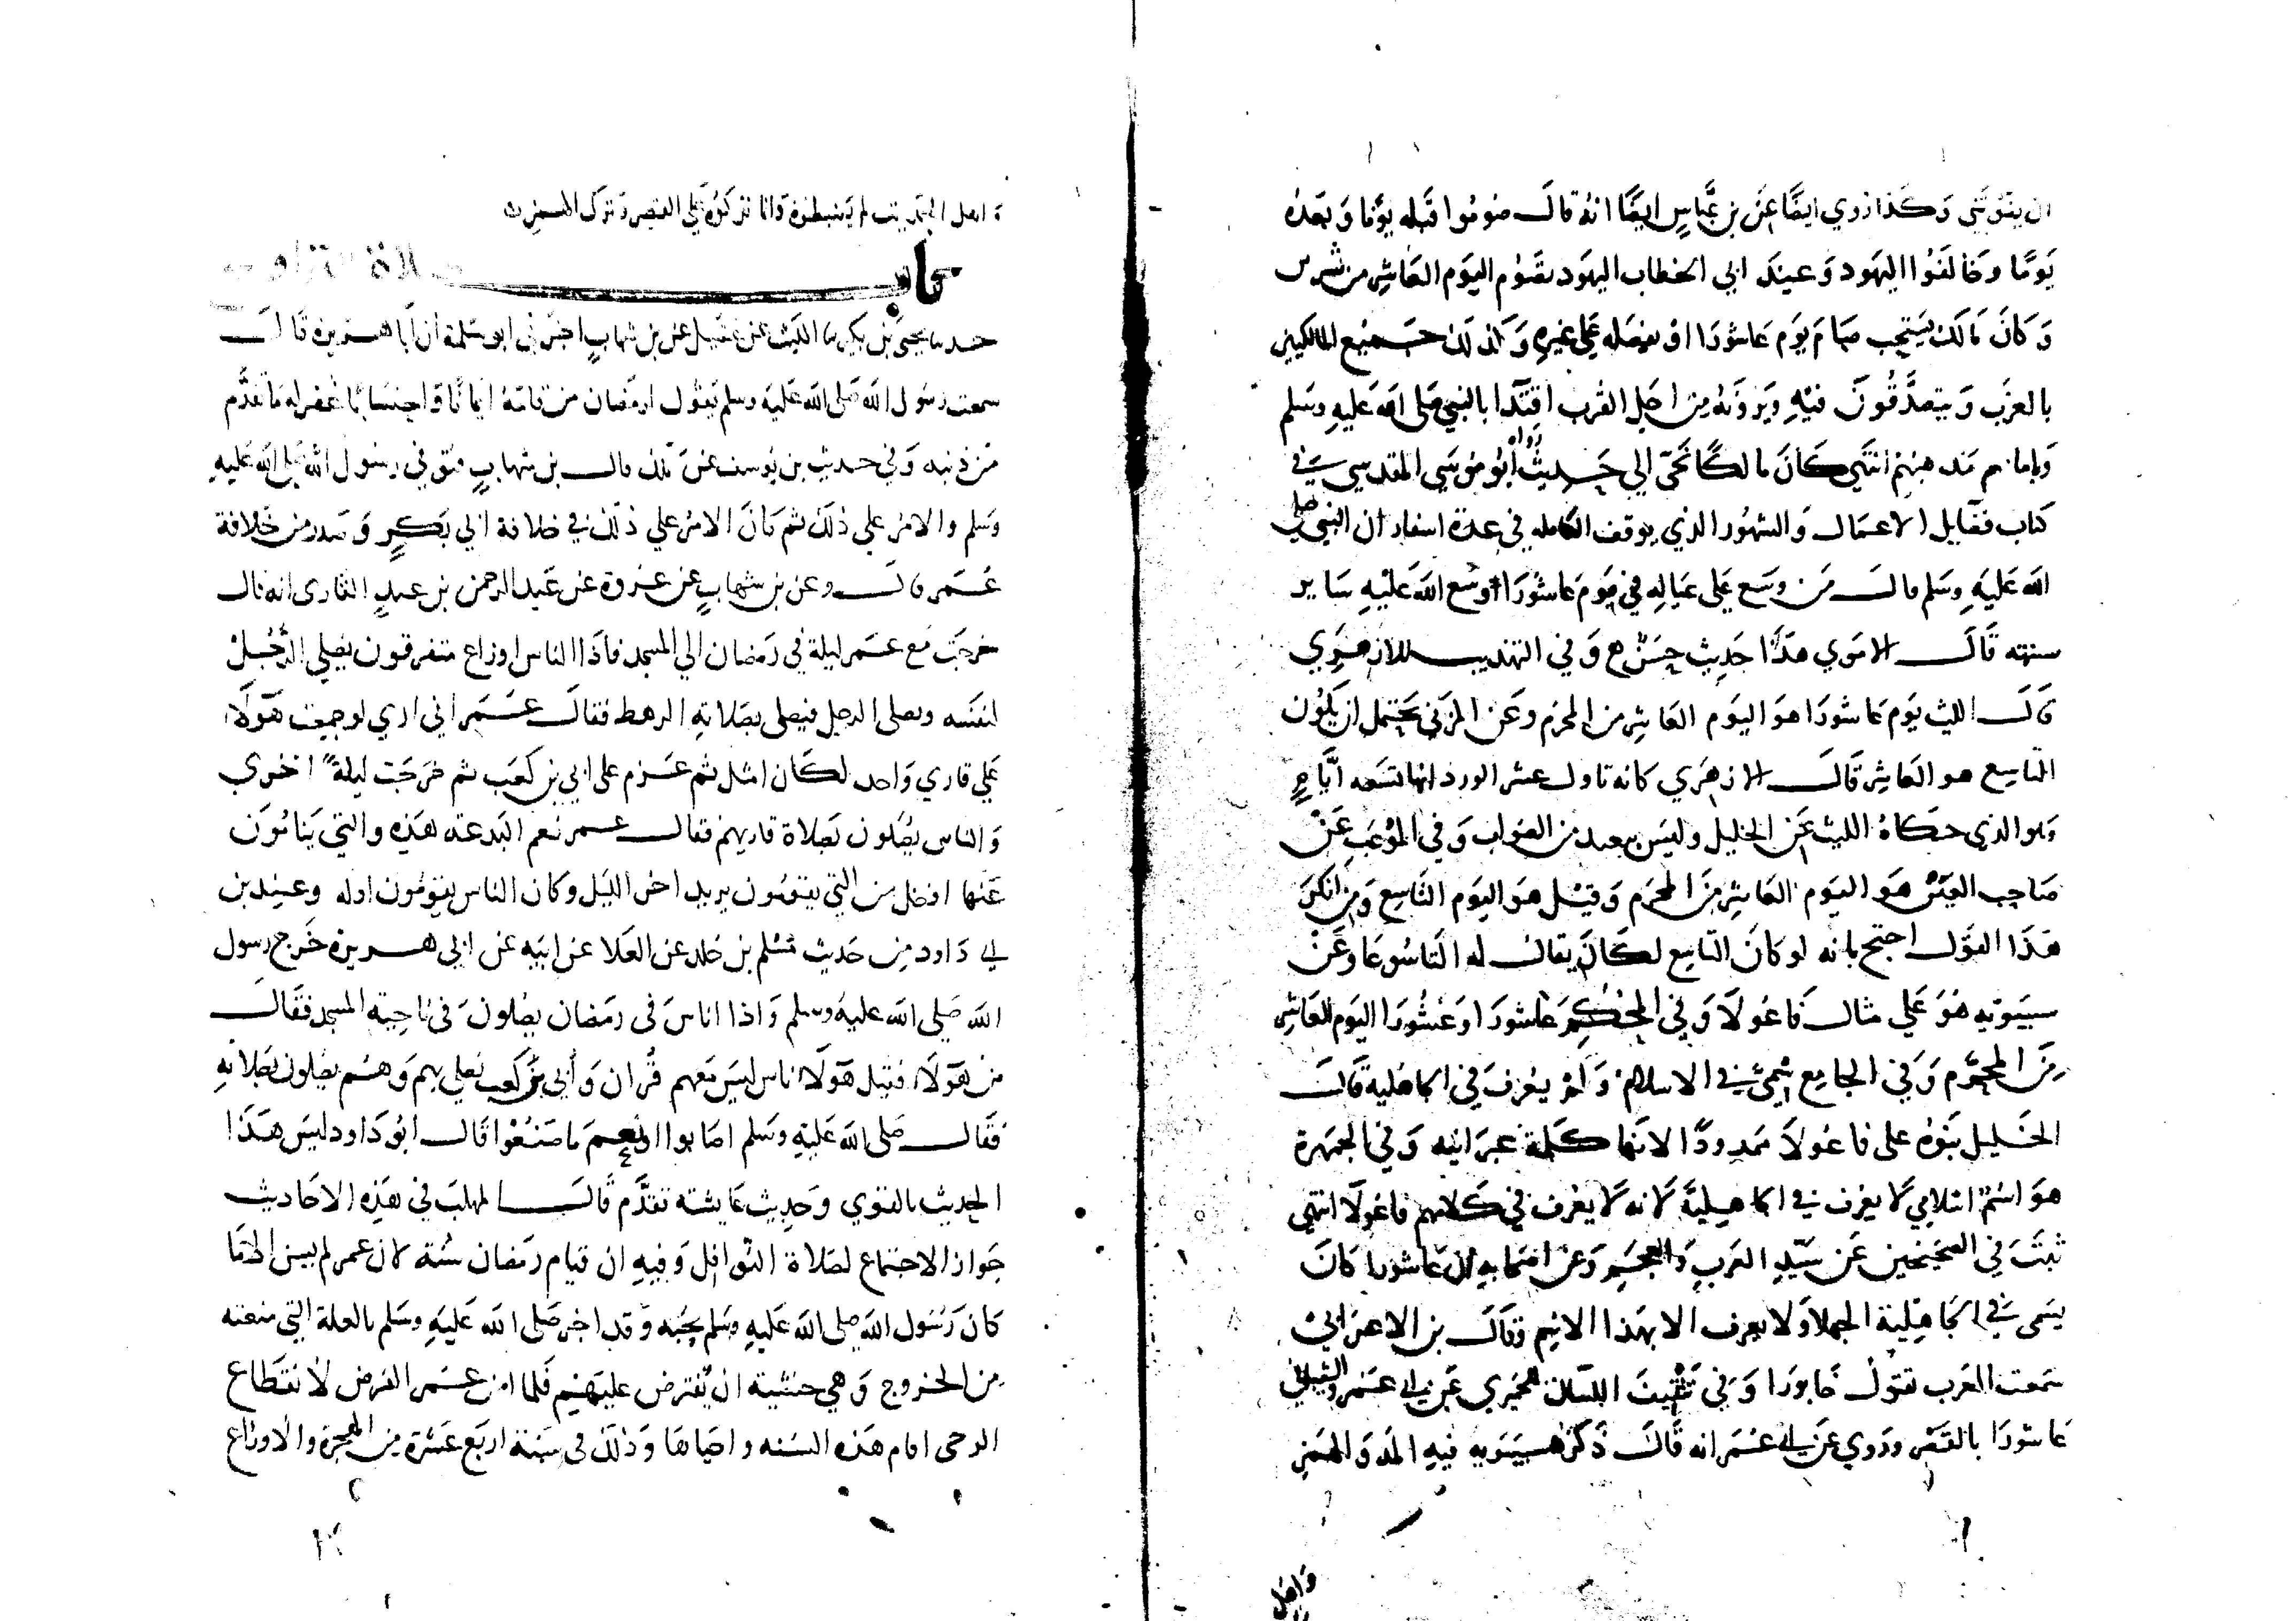 ان يفوتني وكذا روي ايضا عن بن عباس ايضا انه قال صوموا قبله يوما وبعده
يوما وخالفوا اليهود وعند ابي الخطاب اليهود تصوم اليوم العاشر من تشرين
وكان مالك يستحب صيام يوم عاشورا او يفضله علي غيره وكذلك جميع المالكيين
بالعرب ويتصدقون فيه ويرونه من اجل القرب اقتدا بالنبي صلى الله عليه وسلم
وبامام مذهبهم انتهي كان مالكا نحي الي حديث رواه ابو موسي المقدسي في
كتاب فضايل الاعمال والشهور الذي بوقف الكامله في عدة اسفار ان النبي صلى
الله عليه وسلم قال من وسع علي عياله في يوم عاشورا اوسع الله عليه ساير
سنته قال الاموي هذا حديث حسن وفي التهذيب للازهري
قال الليث يوم عاشورا هو اليوم العاشر من المحرم وعن المزني يحتمل ان يكون
التاسع هو العاشر قال الازهري كانه تاول عشر الورد انها تسعه ايام
وهو الذي حكاه الليث عن الخليل وليس ببعيد من الصواب وفي الموعب عن
صاحب العين هو اليوم العاشر من المحرم وقيل هو اليوم التاسع ومن انكر
هذا القول احتج بانه لو كان التاسع لكان يقال له التاسوعا وعن
سيبويه هو علي مثال فاعولا وفي المحكم عاشورا وعشورا اليوم العاشر
من المحرم وفي الجامع سمي في الاسلام ولم يعرف في الجاهلية قال
الخليل بنوه على فاعولا ممدودا لانها كلمة عبرانيه وفي الجمهرة
هو اسم اسلامي لا يعرف في الجاهلية لانه لا يعرف في كلامهم فاعولا انتهي
ثبت في الصحيحين عن سيد العرب والعجم وعن اصحابه ان عاشورا كان
يسمى في الجاهلية الجهلا ولا يعرف الا بهذا الاسم وقال بن الاعرابي
سمعت العرب تقول خابورا وفي تثقيف اللسان للحميري عن ابي عمرو الشيباني
عاشورا بالقصر وروي عن ابي عمر انه قال ذكر سيبويه فيه المد والهمز
واهل
واهل الحديث لم يضبطوه وانما تركوه علي القصر وترك الهمز
باب صلاة التراويح
حدثنا يحيى بن بكير ثنا الليث عن عقيل عن بن شهاب اخبرني ابو سلمة ان ابا هريرة قال
سمعت رسول الله صلى الله عليه وسلم يقول لرمضان من قامه ايمانا واحتسابا غفر له ما تقدم
من ذنبه وفي حديث بن يوسف عن ملك قال بن شهاب فتوفي رسول الله صلى الله عليه
وسلم والامر علي ذلك ثم كان الامر علي ذلك في خلافة ابي بكر وصدر من خلافة
عمر قال وعن بن شهاب عن عروة عن عبد الرحمن بن عبد القاري انه قال
خرجت مع عمر ليلة في رمضان الي المسجد فاذا الناس اوزاع متفرقون يصلي الرجل
لنفسه ويصلي الرجل فيصلي بصلاته الرهط فقال عمر اني اري لو جمعت هولا
علي قاري واحد لكان امثل ثم عزم على ابي بن كعب ثم خرجت ليلة اخري
والناس يصلون بصلاة قاريهم فقال عمر نعم البدعة هذه والتي ينامون
عنها افضل من التي يقومون يريد اخر الليل وكان الناس يقومون اوله وعند بن
ابي داود من حديث مسلم بن خلد عن العلا عن ابيه عن ابي هريرة خرج رسول
الله صلي الله عليه وسلم واذا اناس في رمضان يصلون في ناحية المسجد فقال
من هولا فقيل هولا اناس ليس معهم قران وأبي بن كعب يصلي بهم وهم يصلون بصلاته
فقال صلى الله عليه وسلم اصابوا او نعم ما صنعوا قال ابو داود ليس هذا
الحديث بالقوي وحديث عايشة تقدم قال المهلب في هذه الاحاديث
جواز الاجتماع لصلاة النوافل وفيه ان قيام رمضان سنة لان عمر لم يسن الا ما
كان رسول الله صلى الله عليه وسلم يحبه وقد اخبر صلى الله عليه وسلم بالعلة التي منعته
من الخروج وهي خشية ان يفترض عليهم فلما امن عمر الفرض لانقطاع
الوحي اقام هذه السنه واحياها وذلك في سنة اربع عشرة من الهجرة والاوزاع